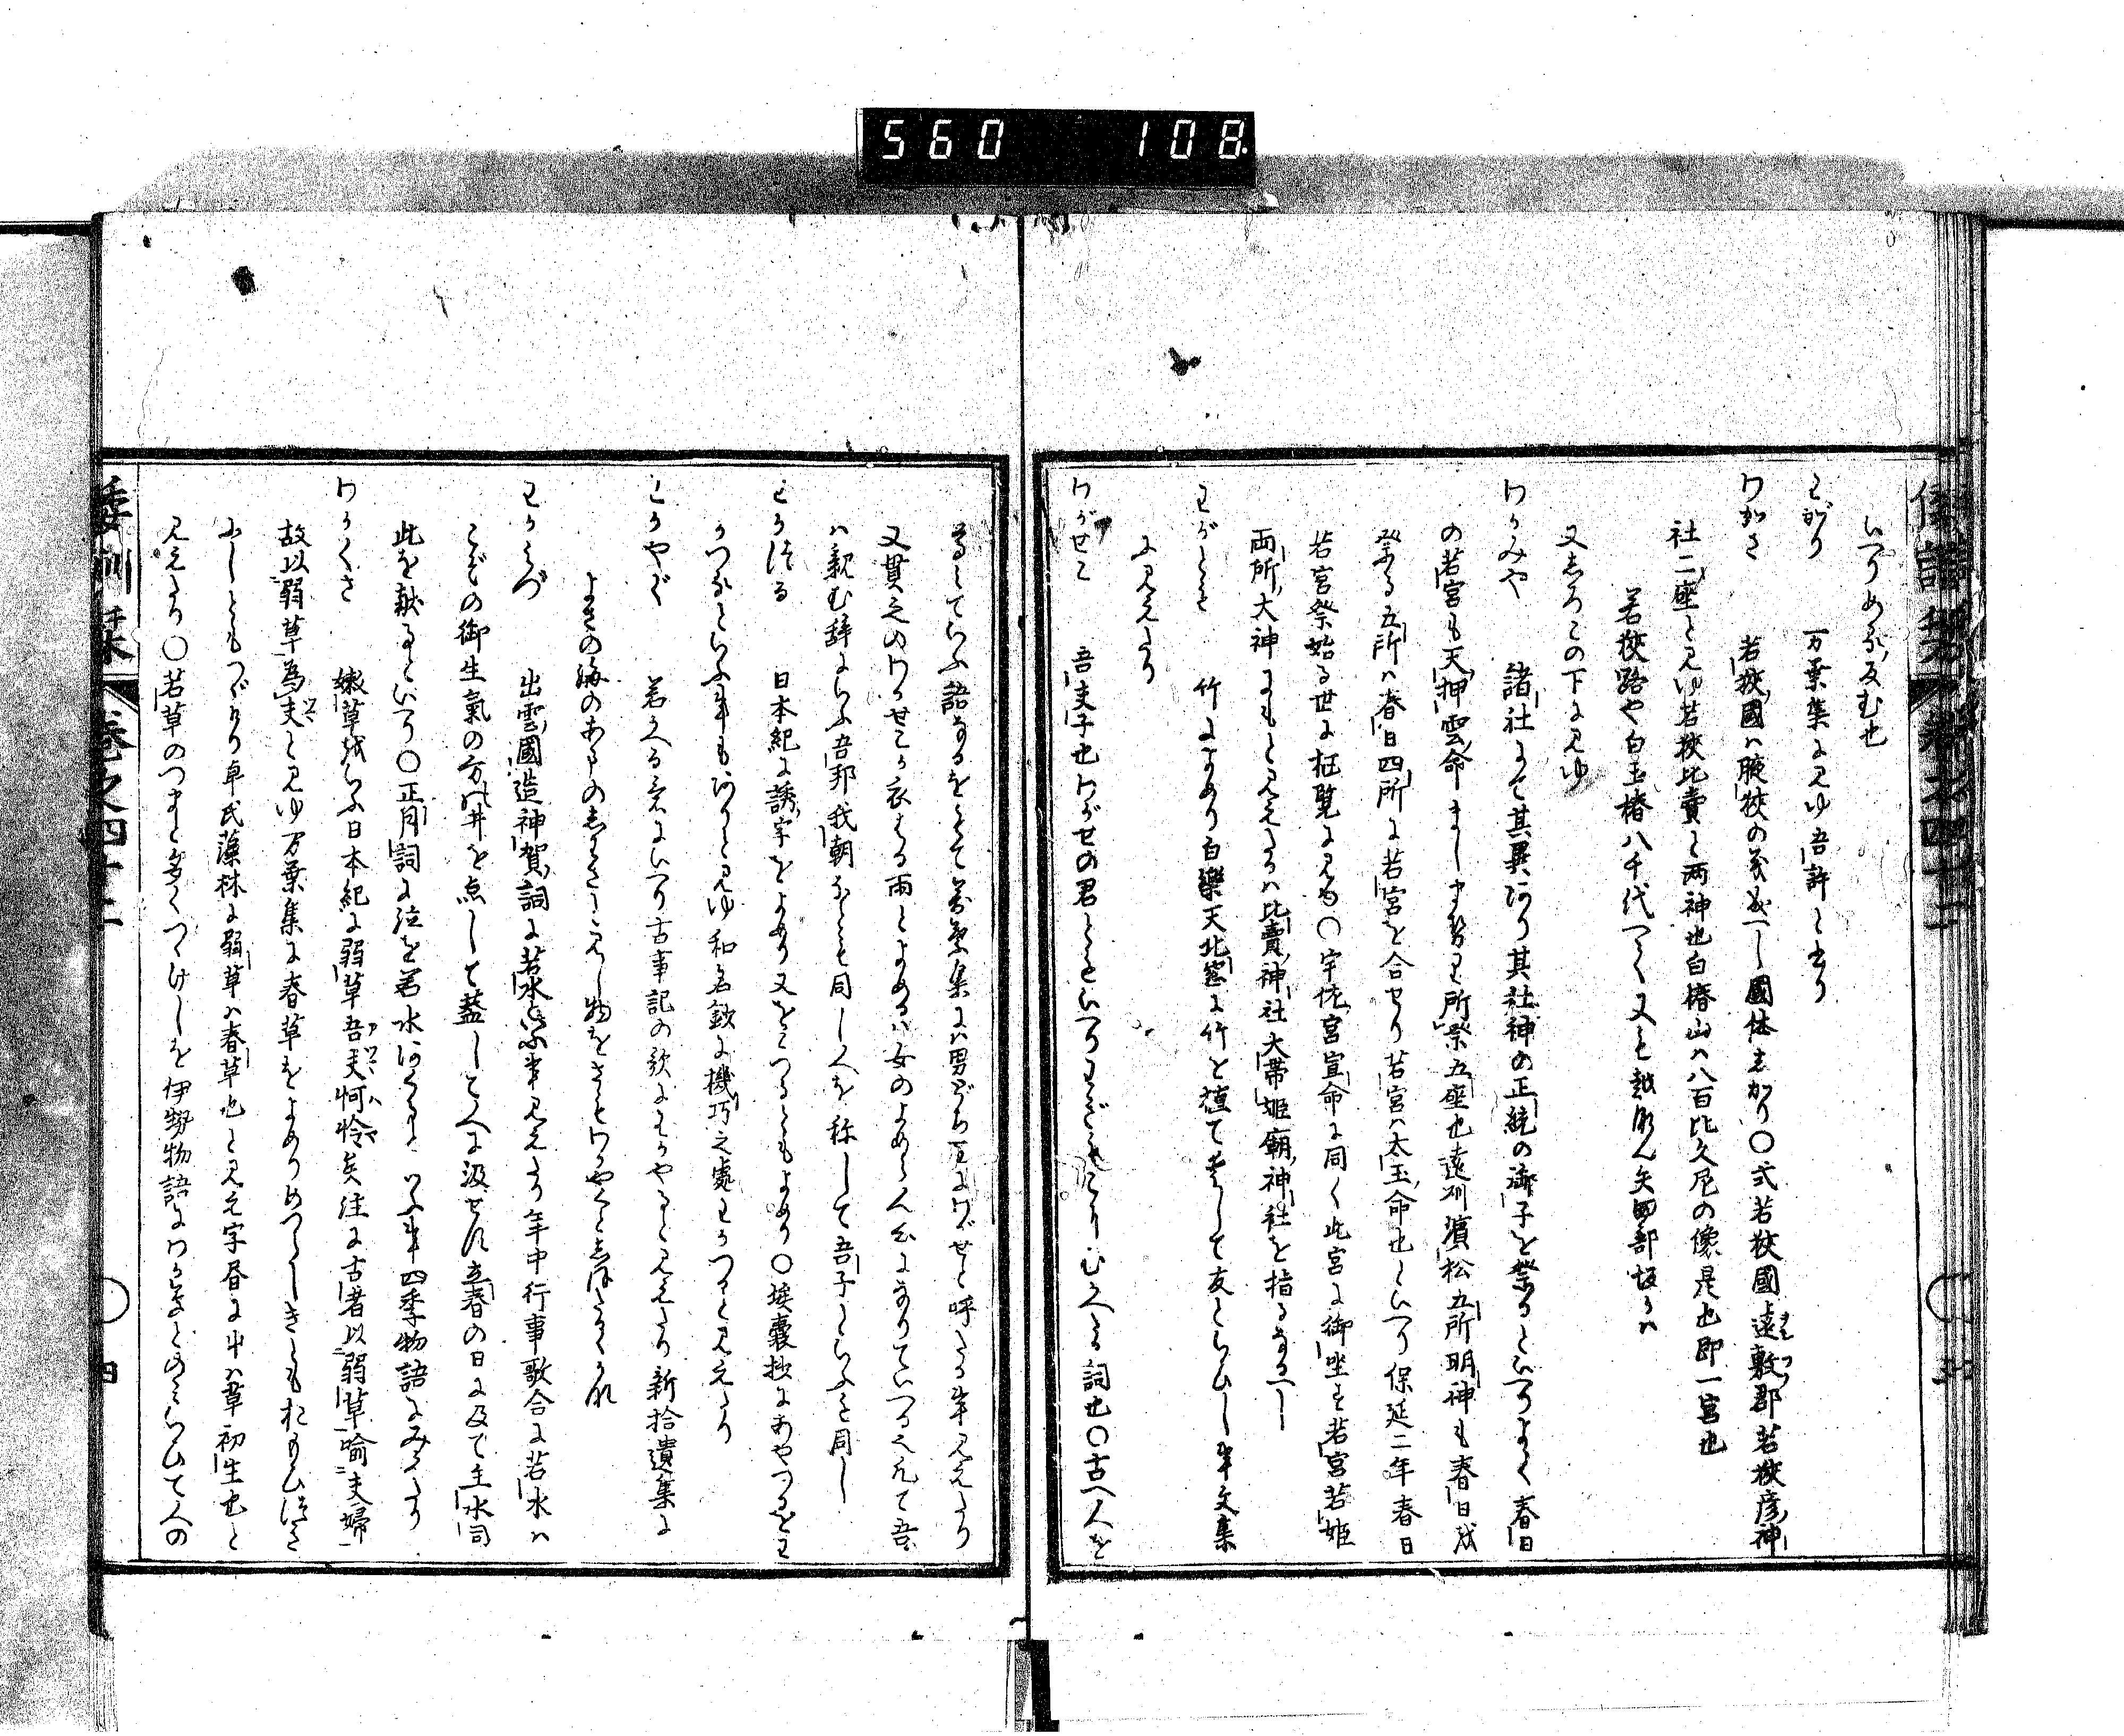 560 108
いつりめれ反む也
わがり 万葉集に見ゆ吾許と書り
わかさ 若狭國ハ腋狭の義成へし國体しかり〇式若狭國遠敷郡若狭彦神
社二座と見ゆ若狭比賣と両神也白椿山ハ八百比久尼の像是也即一宮也
若狭路や白玉椿八千代へて又も越なん矢田部坂かハ
又しろこの下に見ゆ
わかみや 諸社にて其異あり其社神の正統の御子を祭るといへりよく春日
の若宮も天押雲命ましませり所祭五座也遠州濱松五所明神も春日或
祭る五所ハ春日四所に若宮を合せり若宮ハ太玉命也といへり保延二年春日
若宮祭始る世に枉覧に見ゆ〇宇佐宮宣命に同く此宮に御坐す若宮若姫
両所大神にもと見えたるハ比賣神社大帯姫廟神社を指るなるへし
わがとも 竹によめり白樂天北窓に竹を植て愛して友といひし事文集
に見えたり
わがせこ 吾夫子也わがせの君ともいへり 詞也〇古へ人を
尊としていふ語なるをもて萬葉集にハ男どち互にわがせと呼たる事見えたり
又貫之のわかせこか衣はる雨とよめるハ女のよめらん心になりていへる也凡て吾
ハ親む辞にいふ吾邦我朝なとも同し人を称して吾子といふも同し
わかつる 日本紀に誘字をよめり又をこつるともよめり〇埃嚢抄にあやつるをわ
かつなといふ事もありと見ゆ和名鈔に機巧之處わかつると見えたり
わかやぐ 若かへる意にいへり古事記の歌にわかやると見えたり新拾遺集に
よさの海のあまのしわさと見し物をさもわかやくとしほたるゝかな
わかみづ 出雲國造神賀詞に若水といふ事見えたり年中行事歌合に若水ハ
こぞの御生氣の方の井を点して蓋して人に汲せす立春の日に及て主水司
此を献るといへり〇正月詞に泣を若水 いふ事四季物語にみえたり
わかくさ 嫩草をいふ日本紀に弱草吾夫何怜矣注に古者以弱草喩夫婦
故以弱草為夫と見ゆ万葉集に春草をよめりめつらしきともおもひ
ふしともつゞけり卓氏藻林に弱草ハ春草也と見え字書に屮ハ草初生也と
見えたり〇若草のつまと多くつゝけしを伊勢物語にわかくさとのミいひて人の
倭訓栞 卷之四十二
四